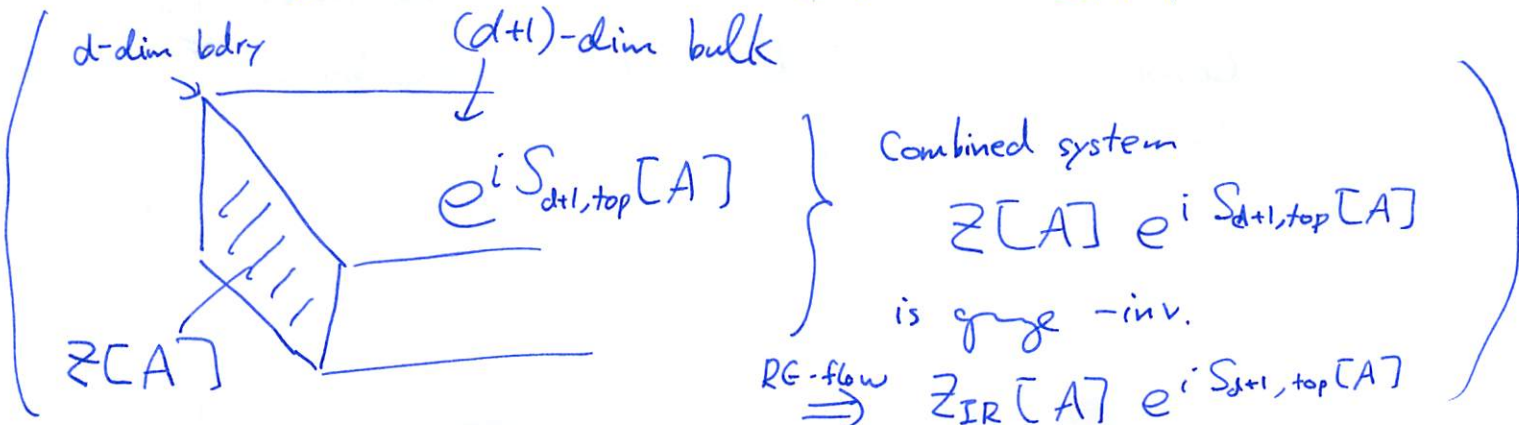 d-dim bdry
(d+1)-dim bulk
e^{i S_{d+1,top}[A]}
Z[A]
Combined system
Z[A] e^{i S_{d+1,top}[A]}
is gauge -inv.
RG-flow
⇒ Z_{IR}[A] e^{i S_{d+1,top}[A]}